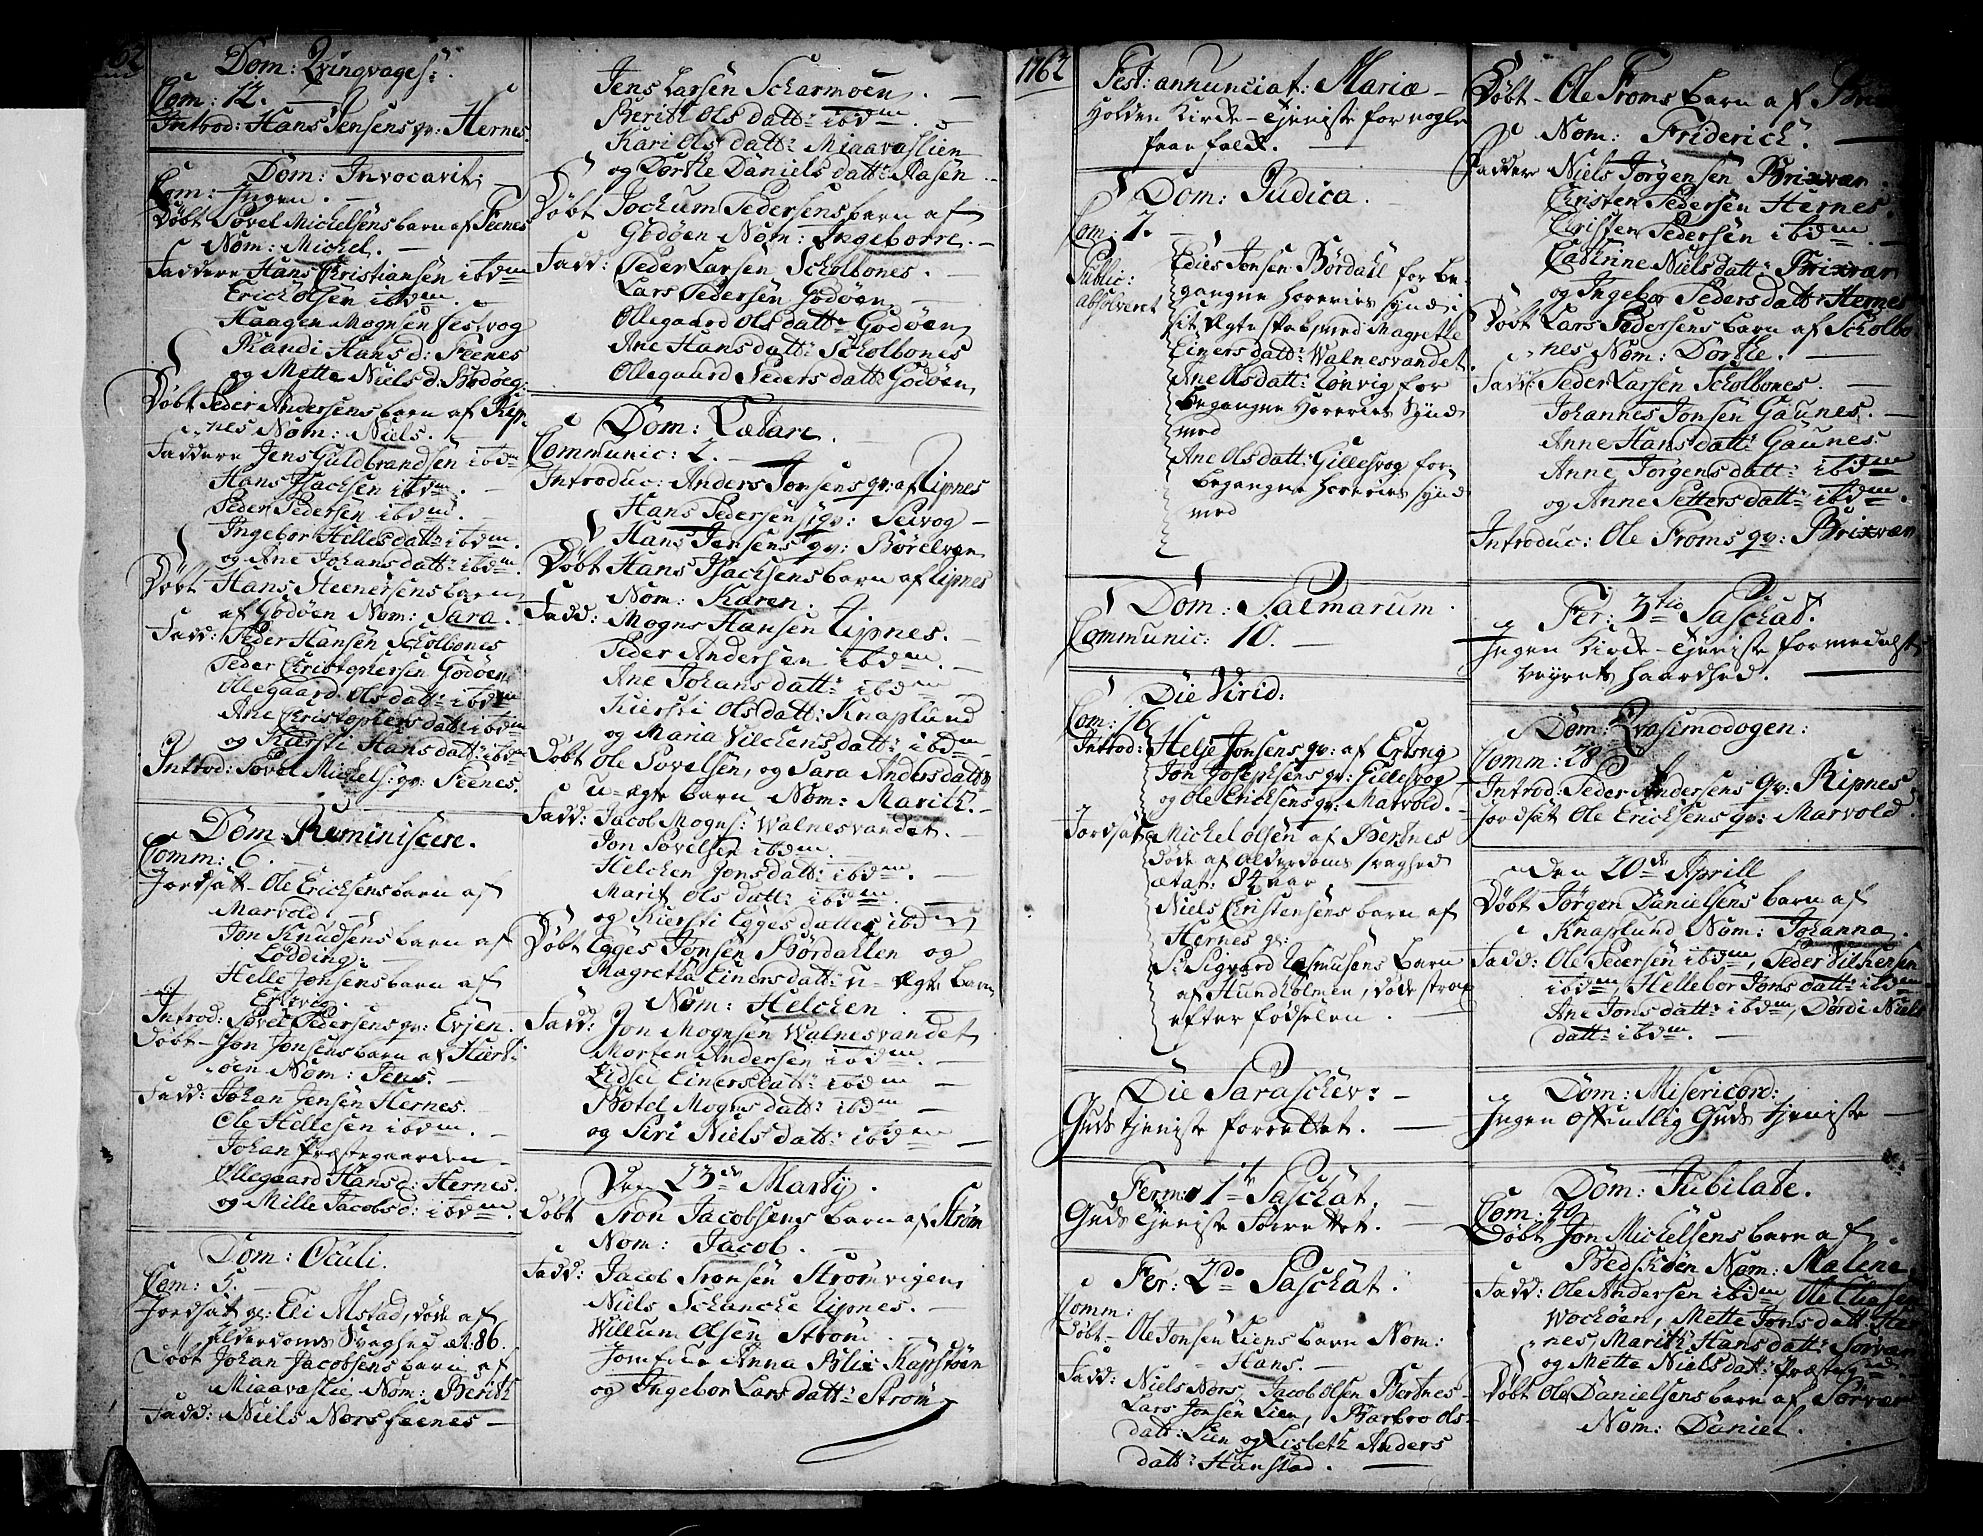 Dom: Qvinqvages:
Com: 12.
Introd: Hans Jensens qv: Hernes
Dom: Invocavit:
Com: Ingen.
Døbt Povel Michelsens barn af Feenes
Nom: Michel.
Faddere Hans Christiansen ibdm
Erich Olsen ibdm.
Haagen Mognsen Festvog
Randi Hansd: Feenes
og Mette Nielsd: Bodøeg:
Døbt Peder Andersens barn af Rip-
nes Nom: Niels.
Faddere Jens Guldbrandsen ibdm
Hans Isachsen ibdm.
Peder Pedersen ibdm.
Ingebor Hellesdatt: ibdm.
og Ane Johansdatt: ibdm.
Døbt Hans Steenersens barn
af Godøen Nom: Sara.
Fadd: Peder Hansen Scholbones
Peder Christophersen Godøen
Ollegaard Olsdatt: ibdm
Ane Christophersdatt: ibdm
og Kiersti Hansdatt: ibdm
Introd: Povel Michels: qv: Feenes.
Dom: Reminiscere.
Comm: 6.
Jordsatt Ole Erichsens barn af
Marvold.
Jon Knudsens barn af
Lødding.
Helle Jonsens barn af
Ertevig.
Introd: Povel Pedersens qv: Evjen.
Døbt Jon Jonsens barn af Hiert-
øen Nom: Jens.
Fadd: Johan Jensen Hernes.
Ole Hellesen ibdm.
Johan Præstegaarden
Ollegaard Hansd: Hernes.
og Mille Jacobsd: ibdm.
Dom: Oculi.
Com: 5.
Jordsat gl: Eli Alstad, døde af
Alderdoms Svaghed æt: 86.
Døbt Johan Jacobsens barn af
Miaavaslie, Nom: Berith
Fadd: Niels Nors Feenes
Jens Larsen Scharmoen.
Berith Olsdatt: ibdm.
Kari Olsdatt: Miaavaslien
og Dorthe Danielsdatt: Aasen.
Døbt Jochum Pedersens barn af
Godøen Nom: Ingeborre.
Fadd: Peder Larsen Scholbones.
Lars Pedersen Godøen
Ollegaard Olsdatt: Godøen
Ane Hansdatt: Scholbones
Ollegaard Pedersdatt: Godøen
Dom: Lætare.
Communic: 2.
Introduc: Anders Jonsens qv: af Lipnes
Hans Pedersens qv: Seivog
Hans Jensens qv: Børelven
Døbt Hans Isachsens barn af Lipnes
Nom: Karen.
Fadd: Mogns Hansen Lipnes.
Peder Andersen ibdm.
Ane Johansdatt: ibdm
Kiersti Olsdatt: Knaplund
og Maria Vilchensdatt: ibdm
Døbt Ole Povelsen, og Sara Andersdatters
u-ægte barn, Nom: Marith.
Fadd: Jacob Mogns: Walnesvandet.
Jon Povelsen ibdm.
Helchen Jonsdatt: ibdm.
Marit Olsdatt: ibdm.
og Kiersti Eggesdatter ibdm
Døbt Egges Jonsen Børdallen og
Magretha Einersdatt: u-ægte barn
Nom: Helchen.
Fadd: Jon Mognsen Walnesvandet
Morten Andersen ibdm.
Zidsel Einersdatt: ibdm
Botel Mognsdatt: ibdm
og Siri Nielsdatt: ibdm
Den 23de Martij.
Døbt Tron Jacobsens barn af Strøm
Nom: Jacob.
Fadd: Jacob Tronsen Strømvigen
Niels Schancke Lipnes.
Willum Olsen Strøm
Jomfrue Anna Blix Kapstøen
og Ingebor Larsdatt: Strøm
1762
Fest: annunciat: Mariæ
Holden Kirke-Tjeniste for nogle
faa folck.
Dom: Judica.
Com: 7.
Public: absolveret
Edies Jonsen Børdahl for be-
gangne Horeries synd i
sit Ægteskab med Magrethe
Einersdatt: Walnesvandet.
Ane Olsdatt: Lønvig for
begangne Horeries synd
med
Ane Olsdatt: Gillesvog for
begangne Horeries synd
med
Dom: Palmarum.
Communic: 10.
Die Virid:
Com: 16
Introd: Helje Jonsens qv: af Ertevig
Jon Josephsens qv: Gillesvog
og Ole Erichsens qv: Marvold.
Jordsat Michel Olsen af Bertnes
døde af Alderdoms svaghed
ætat: 84 aar
Niels Christensens barn af
Hernes
Sr Sigvard Rasmusens barn
af Hundholmen, døde strax
efter fødselen.
Die Paraschev:
Guds tjeniste forrettet.
Feriæ 1te Paschat.
Guds tjeniste forrettet.
Fer: 2da Paschat.
Comm:
Døbt Ole Jonsen Liens barn Nom:
Hans.
Fadd: Niels Nors, Jacob Olsen Bertnes
Lars Jonsen Lien, Barbro Ols-
datt: Lien og Lisbeth Anders
datt: Hunstad.
Døbt Ole Troms barn af
Nom: Friderich.
Faddere Niels Jørgensen Brixvær
Christen Pedersen Hernes.
Christen Pedersen ibdm
Cathrine Nielsdatt: Brixvær
og Ingebor Pedersdatt: Hernes
Døbt Lars Pedersens barn af Scholbo-
nes Nom: Dorthe.
Fadd: Peder Larsen Scholbones.
Johannes Jonsen Gaunes.
Anne Hansdatt: Gaunes
Anne Jørgensdatt: ibdm
og Anne Pettersdatt: ibdm.
Introduc: Ole Troms qv: Brixvær
Fer: 3tia Paschat.
Ingen Kirke-Tjeniste formedelst
veyrets haardhed.
Dom: Qvasimodogen:
Comm: 28
Introd: Peder Andersens qv: Ripnes
Jordsat Ole Erichsens qv: Marvold.
Den 20de Aprill
Døbt Jørgen Danielsens barn af
Knaplund Nom: Johanna.
Fadd: Ole Pedersen ibdm, Peder Vilchensen
ibdm, Hellebor Jonsdatt: ibdm
Ane Jonsdatt: ibdm, Dordi Niels
datt: ibdm.
Dom: Misericord:
Ingen offentlig Guds tjeniste
Dom: Jubilate.
Com: 49
Døbt Jon Michelsens barn af
Bredskøen Nom: Malene.
Fadd: Ole Andersen ibdm Ole
Mette Jonsdatt: Her-
nes, Marith Hansdatt: Sørvær
og Mette Nielsdatt: Præsteg:
Døbt Ole Danielsens barn af Sørvær
Nom: Daniel.